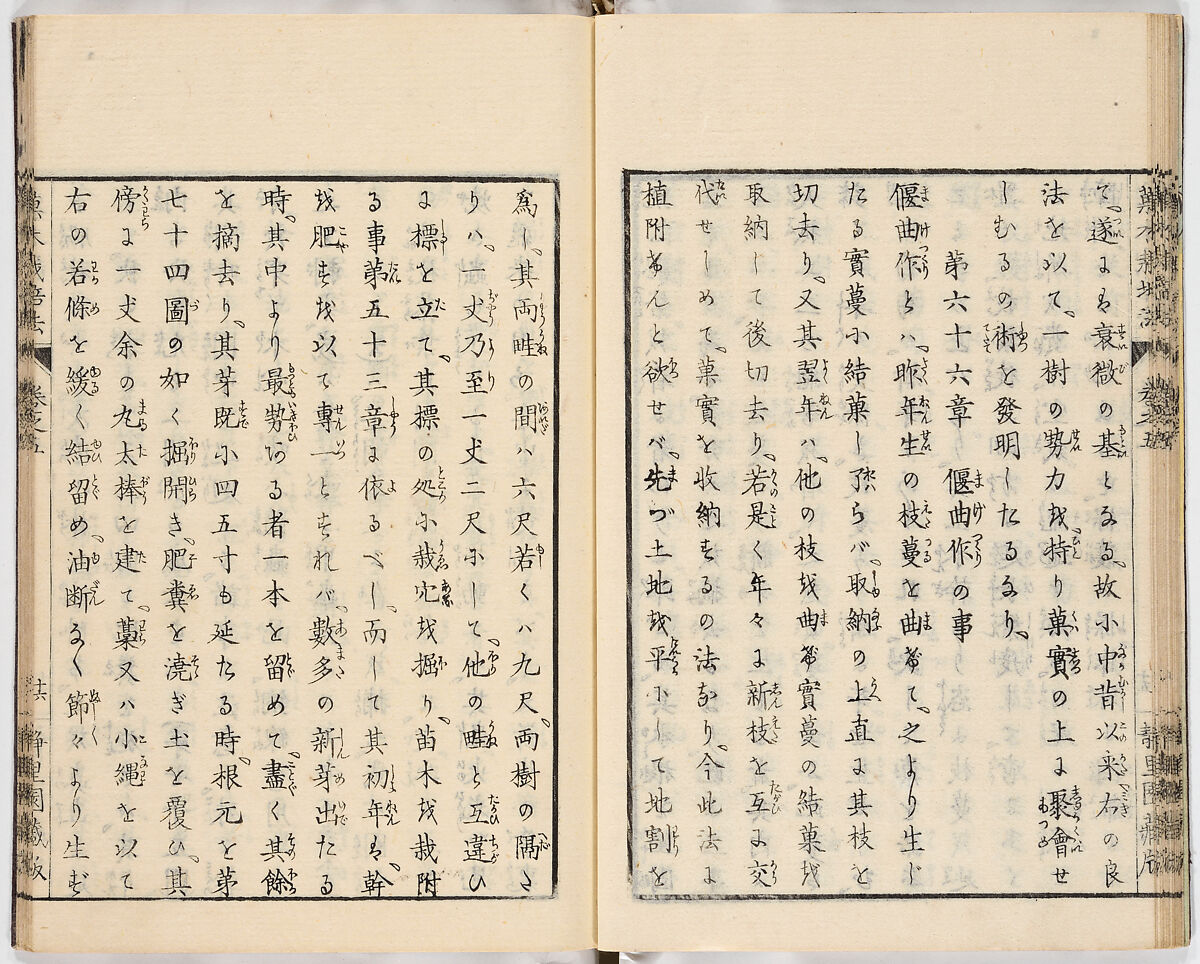 て、遂よも衰微の基となる、故小中昔以来右の良
法を以て、一樹の勢力越持り菓實の上よ聚會せ
しむるの術を發明したるなり、
第六十六章 偃曲作の事
偃曲作とハ、昨年生の枝蔓を曲希て、之より生じ
たる實蔓小結菓し了らバ、取納の上直よ其枝を
切去り、又其翌年ハ、他の枝越曲希實蔓の結菓越
取納して後切去り、若是く年々よ新枝を互よ交
代せしめて、菓實を收納するの法なり、今此法よ
植附希んと欲せバ、先づ土地越平小して地割を
為し、其両畦の間ハ六尺若くハ九尺、両樹の隔さ
りハ、一丈乃至一丈二尺小して、他の畦と互違ひ
よ標を立て、其標の処小栽穴越掘り、苗木越栽附
る事第五十三章よ依るべし、而して其初年も、幹
越肥す越以て專一とすれバ、數多の新芽出たる
時、其中より最勢ある者一本を留めて、盡く其餘
を摘去り、其芽既小四五寸も延たる時、根元を第
七十四圖の如く掘開き、肥糞を澆ぎ土を覆ひ、其
傍よ一丈余の丸太棒を建て、藁又ハ小縄を以て
右の若條を緩く結留め、油断なく節々より生ず
静里園蔵版